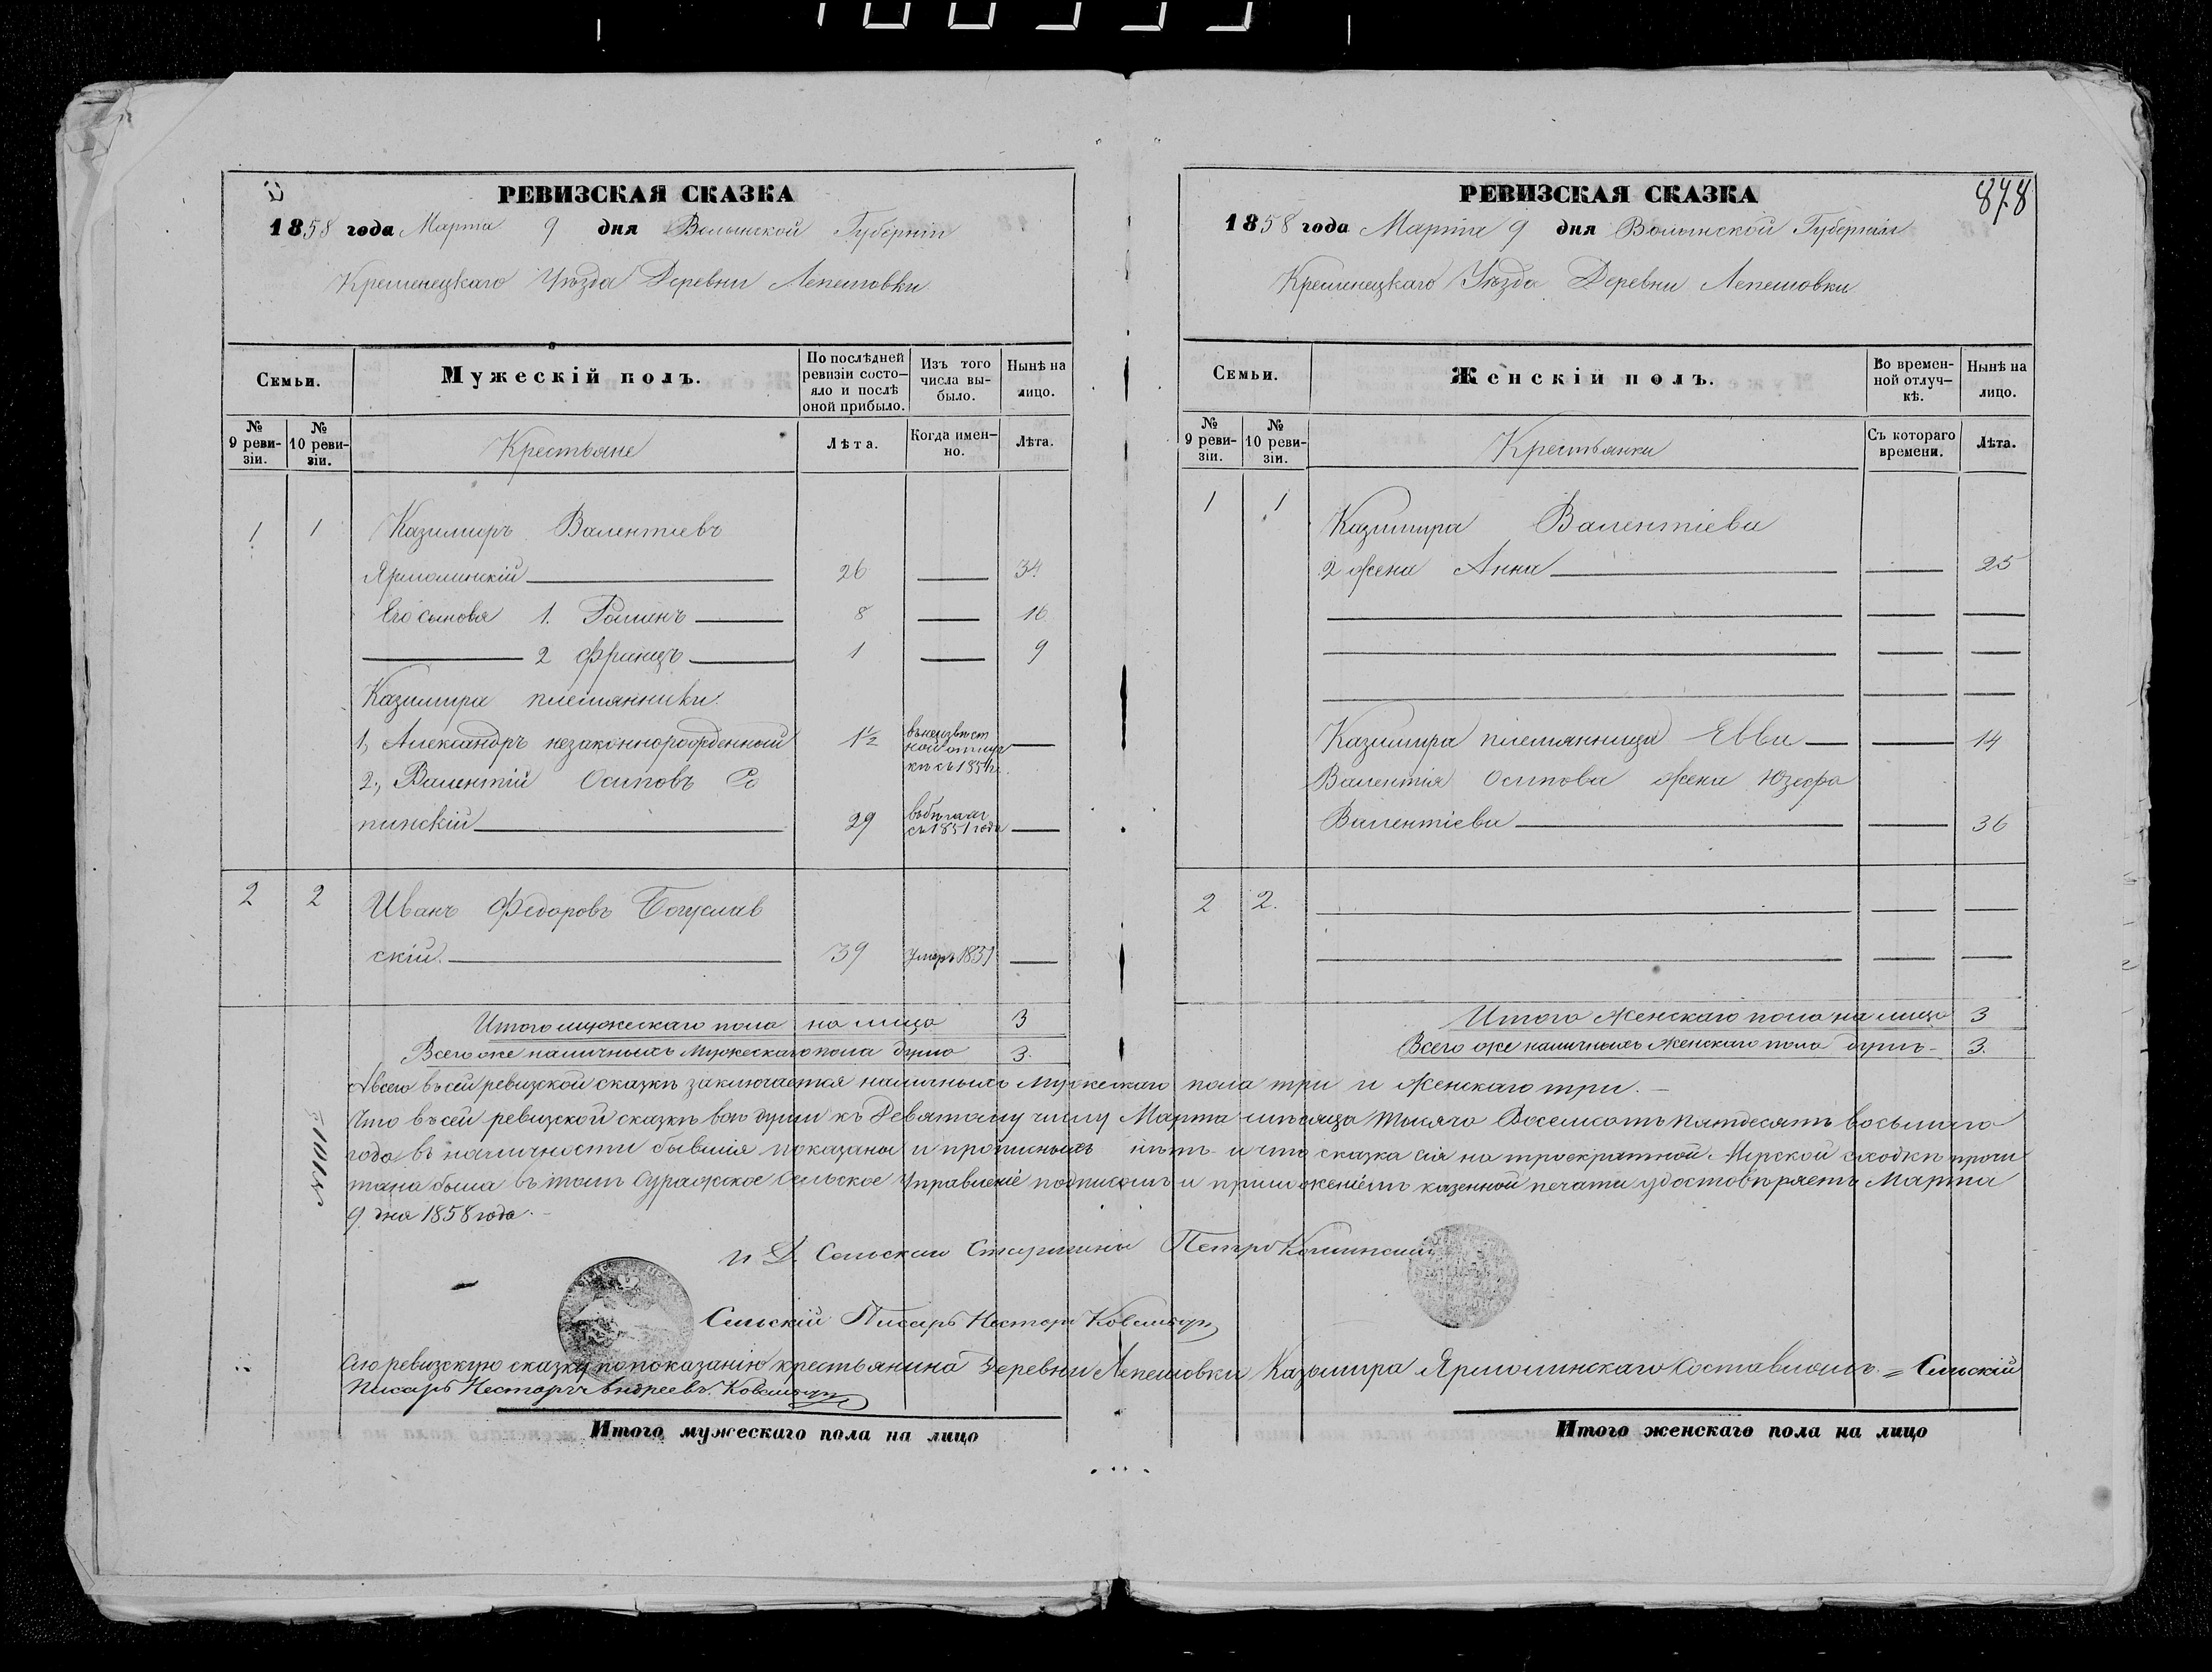 РЕВИЗСКАЯ СКАЗКА
1858 года Марта 9 дня Волынской Губерніи
Кременецкаго Уѣзда Деревни Лепешовки
Семьи.
Мужескій полъ.
По послѣдней ревизіи состо-
яло и послѣ
оной прибыло.
Изъ того
числа вы-
было.
Нынѣ на
лицо.
№
9 реви-
зіи.
№
10 реви-
зіи.
Крестьяне
Лѣта.
Когда имен-
но.
Лѣта.
1 1 Казимиръ Валентіевъ
Ярмолинскій 26 34
Его сыновя 1. Романъ 8 16
2 Францъ 1 9
Казимира племянники
1, Александръ незаконнорожденный 1½ въ неизвѣст
ной отлуч
кѣ съ 1851 г.
2, Валентій Осиповъ
пинскій 29 въ бѣгахъ
съ 1851 года
2 2 Иванъ Федоровъ Богуслав
скій. 39 умеръ 1851
Итого мужескаго пола на лицо 3
Всего же наличныхъ мужескаго пола душъ 3.
РЕВИЗСКАЯ СКАЗКА
878
1858 года Марта 9 дня Волынской Губерніи
Кременецкаго Уѣзда Деревни Лепешовки
Семьи.
Женскій полъ.
Во времен-
ной отлуч-
кѣ.
Нынѣ на
лицо.
№
9 реви-
зіи.
№
10 реви-
зіи.
Крестьянки
Съ котораго
времени.
Лѣта.
1 1 Казимира Валентіева
2 жена Анна 25
Казимира племянница Евва 14
Валентія Осипова жена Юзефа
Валентіева 36
2 2.
Итого Женскаго пола на лицо 3
Всего же наличныхъ Женскаго пола душъ 3.
А всего въ сей ревизской сказкѣ заключается наличныхъ мужескаго пола три и Женскаго три.
Что въ сей ревизской сказкѣ всѣ души къ Девятому числу Марта мѣсяца тысяча Восемсотъ пятдесятъ восьмаго
года въ наличности бывшія показаны и прописныхъ нѣтъ и что сказка сія на троекратной Мірской сходкѣ прочи
тана была въ томъ Суражское Сельское Управленіе подписомъ и приложеніемъ казенной печати удостовѣряетъ Марта
9 дня 1858 года.
и Д. Сельскаго Старшины Петро
Сельскій Писарь Несторъ
Сію ревизскую сказку по показанію крестьянина Деревни Лепешовки Казимира Ярмолинскаго составлялъ = Сельскій
Писарь Несторъ Андреевъ
Итого мужескаго пола на лицо
Итого женскаго пола на лицо